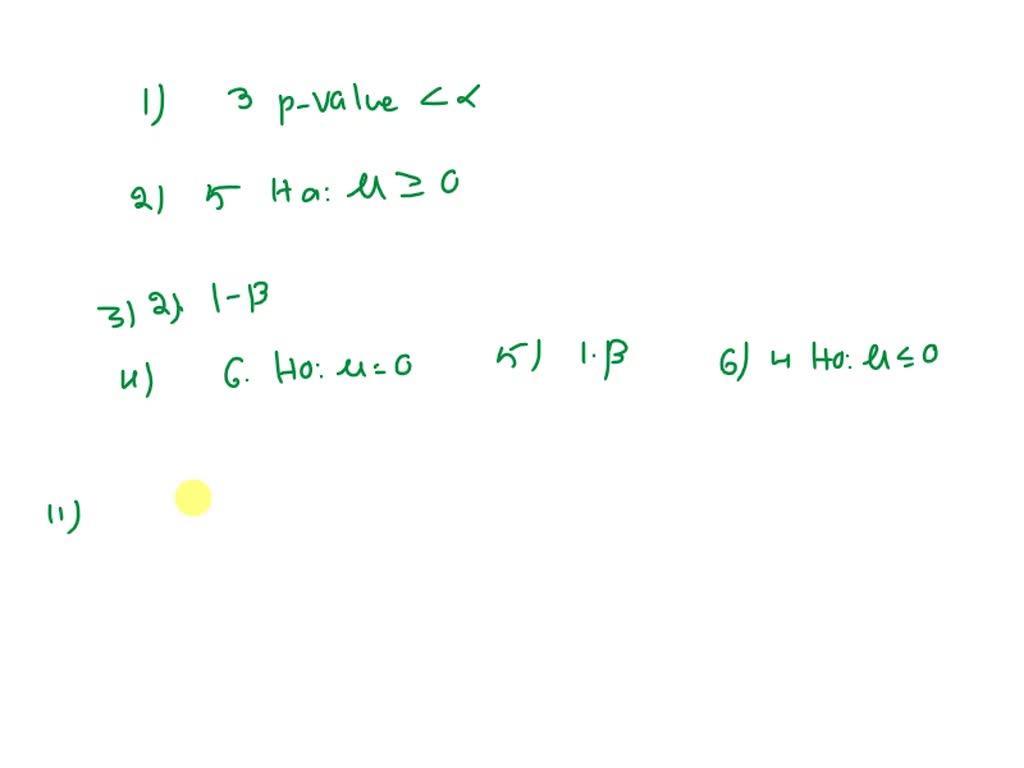 1) 3 p-value < α
2) 5 Ha: μ ≥ 0
3) 2). 1-β
4) 6. Ho: μ = 0 5) 1. β 6) 4 Ho: μ ≤ 0
11)